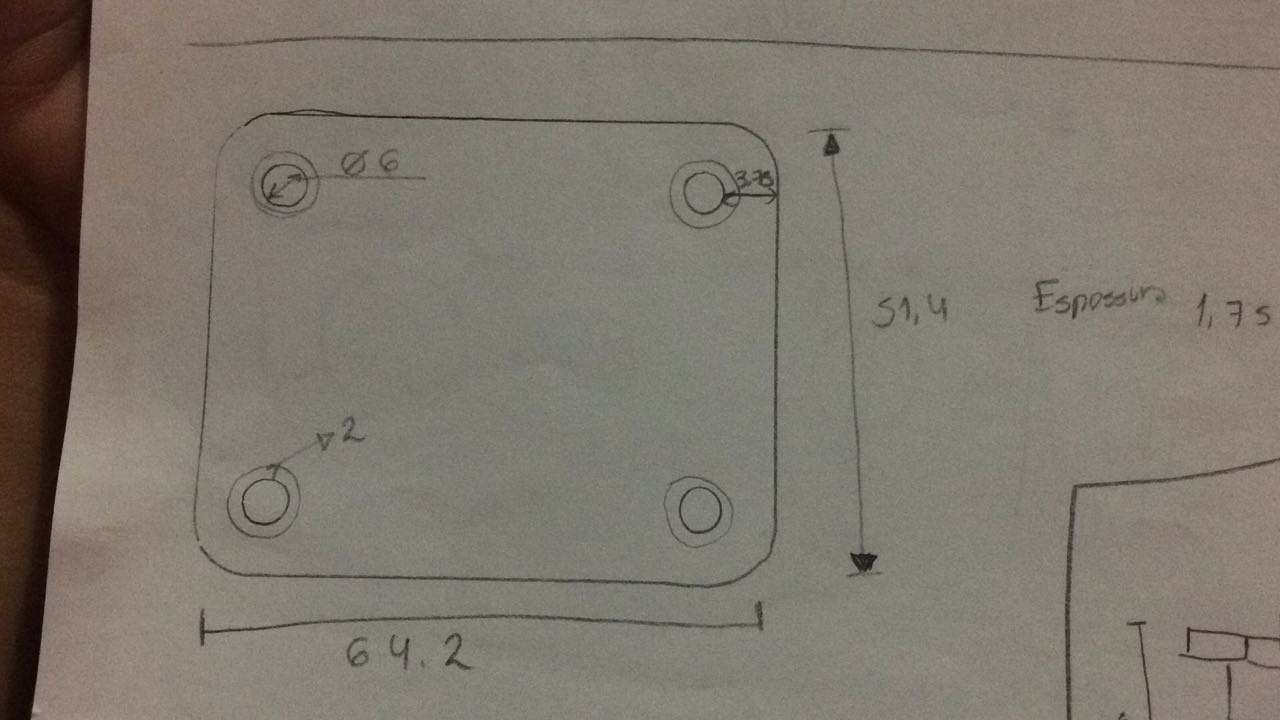 Ø 6
3.75
51,4
Espossura 1,75
2
64.2